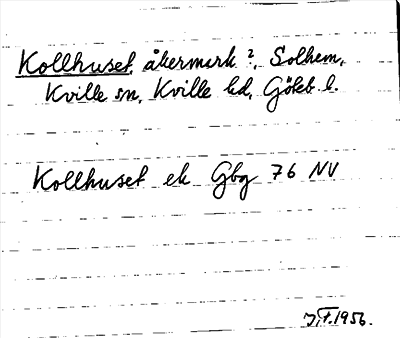 Kollhuset, åkermark ?, Solhem,
Kville sn, Kville hd, Göteb. l.
Kollhuset ek Gbg 76 NV
1956.